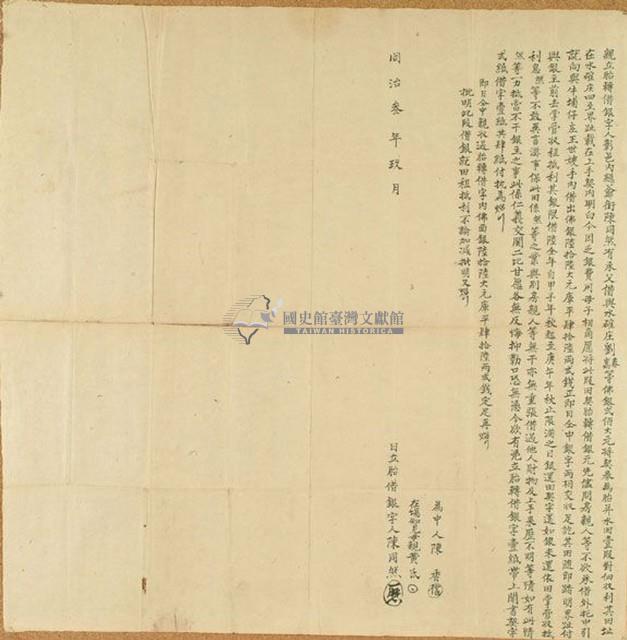 親立胎轉借銀字人彰邑內總爺街陳同然有承父借與水碓庄劉等佛銀貳佰大元將契券為胎并水田壹段對佃收利其田址
在水碓庄四至界址載在上手契內明白今因乏銀費用母子相商願將此段田契胎轉借銀元先儘問房親人等不欲承借外托中引
就向與牛埔仔庄王世手內借出佛銀陸拾陸大元庫平肆拾陸兩貳錢正即日仝中銀字兩相交收足訖其田隨即踏明界址付
與銀主前去掌管收租抵利其銀限借陸全年自甲子年秋起至庚午年秋止限滿之日銀還田契字還如銀未還依田掌管收抵
利息然等不敢異言滋事保此田係然等之業與別房親人等無干亦無重張借過他人財物及上手來歷不明等情如有此情
然等一力抵當不干銀主之事此係仁義交關二比甘愿各無反悔抑勒口恐無憑今欲有憑立胎轉借銀字壹紙帶上鬮書契字
貳紙借字壹紙共肆紙付執為炤
即日仝中親收過胎轉借字內佛面銀陸拾陸大元庫平肆拾陸兩貳錢完足再炤
批明此段借銀就田租抵利不論加減批明又炤
同治叁年玖月
國史館臺灣文獻館
TAIWAN HISTORICA
為中人陳
在場知見母親黃氏
日立胎借銀字人陳同然